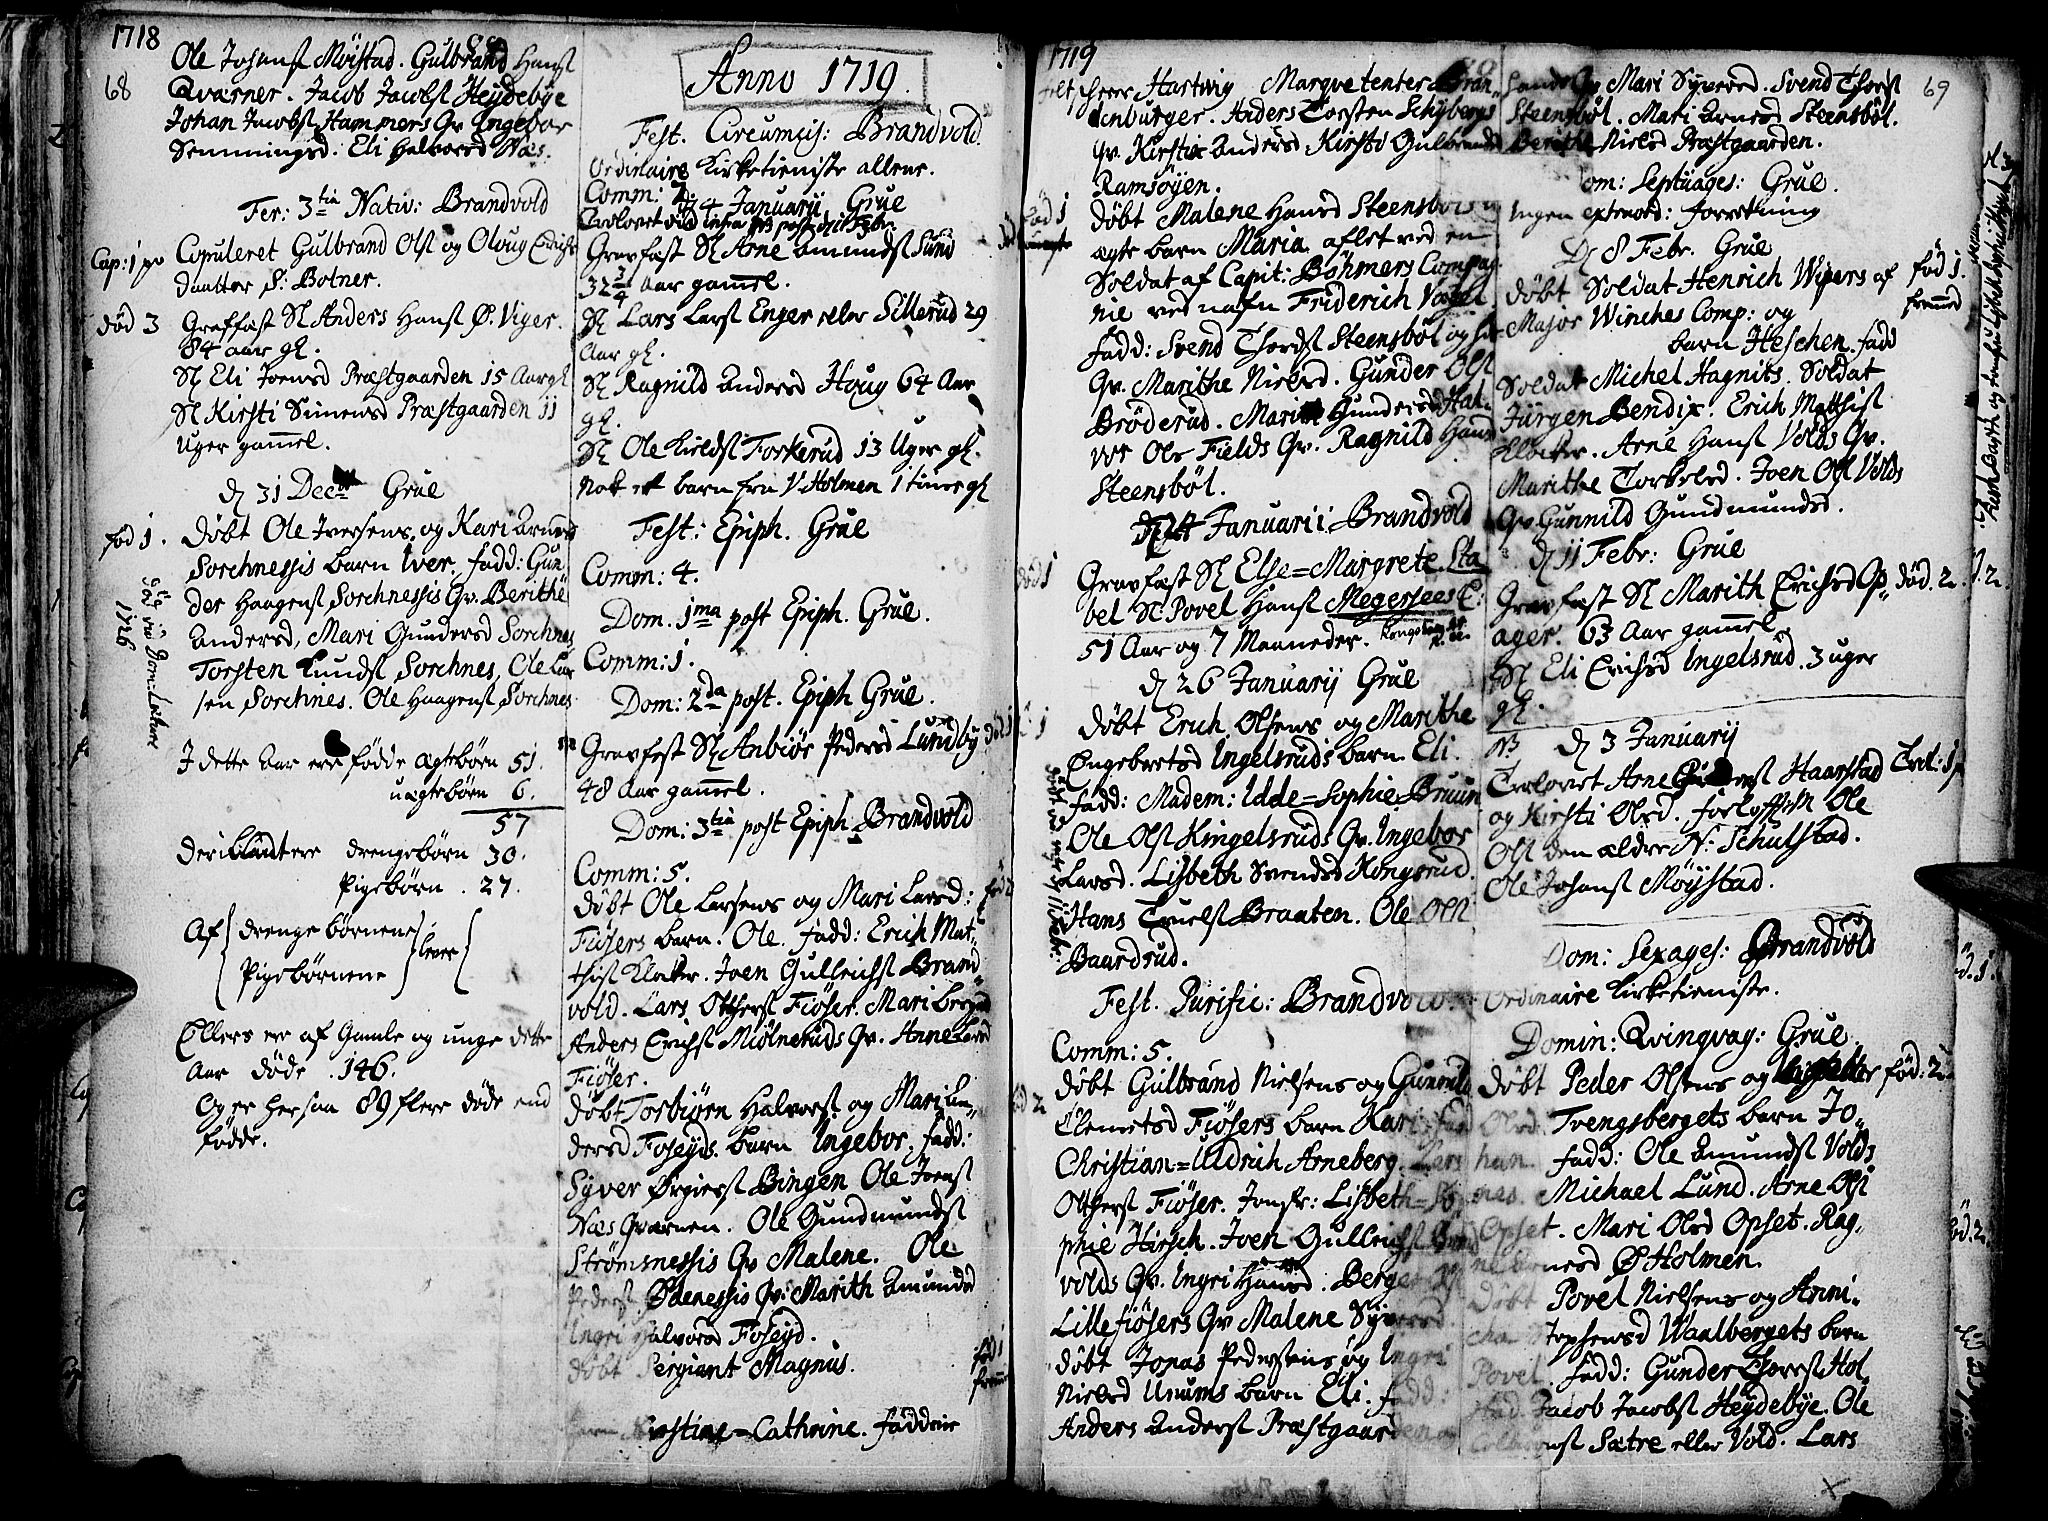 1718
68
Ole Johansʃ Møistad. Gulbrand Hansʃ
Qværner. Jacob Jacobsʃ Heydebye
Johan Jacobsʃ Hammers Qv Ingebor
Semmingsd. Eli Halvorsd Næs.
Fer: 3tia Nativ: Brandvold
Cop: 1 pr
Copuleret Gulbrand Olsʃ og Oloug
Daatter S: Botner.
død 3
Graffæst Sl Anders Hansʃ Ø. Viger.
84 aar gl.
Sl Eli Joensd Præstgaarden 15 Aar gl
Sl Kirsti Simensd Præstgaarden 11
Uger gammel.
D 31 Decbr Grue
fød 1.
Døbt Ole Iversens, og Kari Arnesd
Sorchnessis barn Iver. fadd: Gun
der Haagensʃ Sorchnessis Qv. Berithe
Andersd, Mari Gundersd Sorchnes
Torsten Lundsʃ Sorchnes, Ole Lar
sen Sorchnes. Ole Haagensʃ Sorchnes
1726
I dette Aar ere fødde ægtebørn 51.
uægtebørn 6.
57
drengebørn 30.
Pigebørn. 27.
Af drengebørnene
Pigebørnene
lever
Ellers ere af Gamle og unge dette
Aar døde. 146.
Og er hersaa 89 flere døde end
fødde.
Anno 1719.
Fest. Circumcis: Brandvold.
Ordinaire Kirketieniste allene.
D 4 Januarii Grue
Gravfæst Sl Arne Amundsʃ Lund
32 3/4 aar gammel.
Sl Lars Larsʃ Enger eller Sillerud 29
Aar gl.
Sl Ragnild Andersd Houg 64 Aar
gl.
Sl Ole Kieldsʃ Torkerud 13 Uger gl.
Nok et barn fra V. Holmen 1 times gl
Fest: Epiph. Grue
Comm: 4.
Dom. 1ma post Epiph. Grue.
Comm: 1.
Dom: 2da post. Epiph Grue.
Gravfest Sl Anbiør Pedersd Lundby
48 Aar gammel.
Dom: 3tia post Epiph. Brandvold
Comm: 5.
Døbt Ole Larsens og Mari Larsd:
Fiøsers barn. Ole. fadd: Erich Mat-
thisʃ Klocker. Joen Gulleichsʃ Brand-
vold. Lars Ottersʃ Fiøser. Mari
Anders Erichsʃ Miølneruds Qv. Anne Larsd
Fiøser.
Døbt Torbiørn Halvorsʃ og Mari An-
dersd Foseyds barn Ingebor. fadd:
Syver Ørgiersʃ Bingen Ole Joensʃ
Næs Qværnen. Ole Gundmundsʃ
Strømsnessis Qv Malene. Ole
Pedersʃ Ødenessis Qv: Marith Amundsd
Ingri Halvorsd Foseyd.
døbt Sergiant Magnus.
fød 1
Kirstine=Cathrine. faddere
1719
Hartvig Marqvetenter
denburger. Anders Torsten Schyberg
Qv. Kirstie Andersd Kirsti Gulbrandsd
Ramsøyen.
fød 1
Døbt Malene Hansd Steensbøls
ægte barn Maria aflet ved en
Soldat af Capit: Bøhmers Compag
nie ved nafn Friderich Vogel
fadd: Svend Thordsʃ Steensbøl og
Qv. Marithe Nielsd. Gunder Olsʃ
Brøderud. Mari Gundersd Hal-
vor Ols Fields Qv. Ragnild Hansd
Steensbøl.
D 24 Januarii: Brandvold
død 1
Gravfæst Sl Else=Margrete Sta
bel Sl Povel Hansʃ Megersees E:
51 Aar og 7 Maaneder.
D 26 Januarij Grue
Døbt Erich Olsens og Marithe
Engebretsd Ingelsruds barn Eli.
fadd: Madem: Idde=Sophie Bruun
Ole Olsʃ Kingelsruds Qv. Ingebor
Larsd. Lisbeth Svendsd Kongsrud.
Hans Truelsʃ Braaten. Ole Olsʃ
Baardsrud.
Fest. Purific: Brandvold.
Comm: 5.
Døbt Gulbrand Nielsens og Gunnild
Clemetsd Fiøsers barn Kari. fadd
Christian=Uldrich Arneberg. Lars
Ottersʃ Fiøser. Jomfr: Lisbeth=So
phie Hirsch. Joen Gulleichsʃ Brand
volds Qv. Ingri Hansd. Berger
Lillefiøsers Qv Malene Syversd
Døbt Jonas Pedersens og Ingri
Nielsd Unums barn Eli. fadd:
Anders Andersʃ Præstgaarden
69
Mari Syversd. Svend Thorsʃ
Steensbøl. Mari Arnesd Steensbøl.
Berithe Nielsd Præstgaarden.
Dom: Septuages: Grue.
Ingen extraord: forretning
D 8 Febr. Grue
fød 1.
fremmed
døbt Soldat Henrich Wipers af
Major Winches Comp: og
barn Heschen. fadd
Soldat Michel Hagnits. Soldat
Jürgen Bendix. Erich Matthisʃ
Klocker. Arne Hansʃ Volds Qv.
Marithe Torkelsd. Joen Olsʃ Volds
Qv Gunnild Gundmundsd.
D 11 Febr: Grue
død. 2.
Gravfæst Sl Marith Erichsd Op-
ager. 63 Aar gammel.
Sl Eli Erichsd Ingelsrud. 3 uger
gl.
NB D 3 Januarij
Trolovet Arne Haarstad
og Kirsti Olsd. forloffsm Ole
Olsʃ den ældre N: Schulstad.
Ole Johansʃ Møystad.
Dom: Sexages: Brandvold
Ordinaire Kirketieniste.
Domin: Qvinqvag: Grue.
fød: 2.
Døbt Peder Olsens og
Olsd. Tvengsbergets barn Jo-
han. fadd: Ole Amundsʃ Volds
Michael Lund. Arne Olsʃ
Opset. Mari Olsd Opset. Rag-
Ø Holmen.
Døbt Povel Nielsens og Anni-
cha Stephensd Waalbergets barn
Povel. fadd: Gunder Thorsʃ Hol-
stad. Jacob Jacobsʃ Heydebye. Ole
Sætre eller Vold. Lars